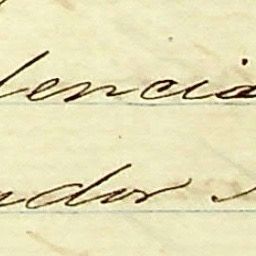 dencia
ador